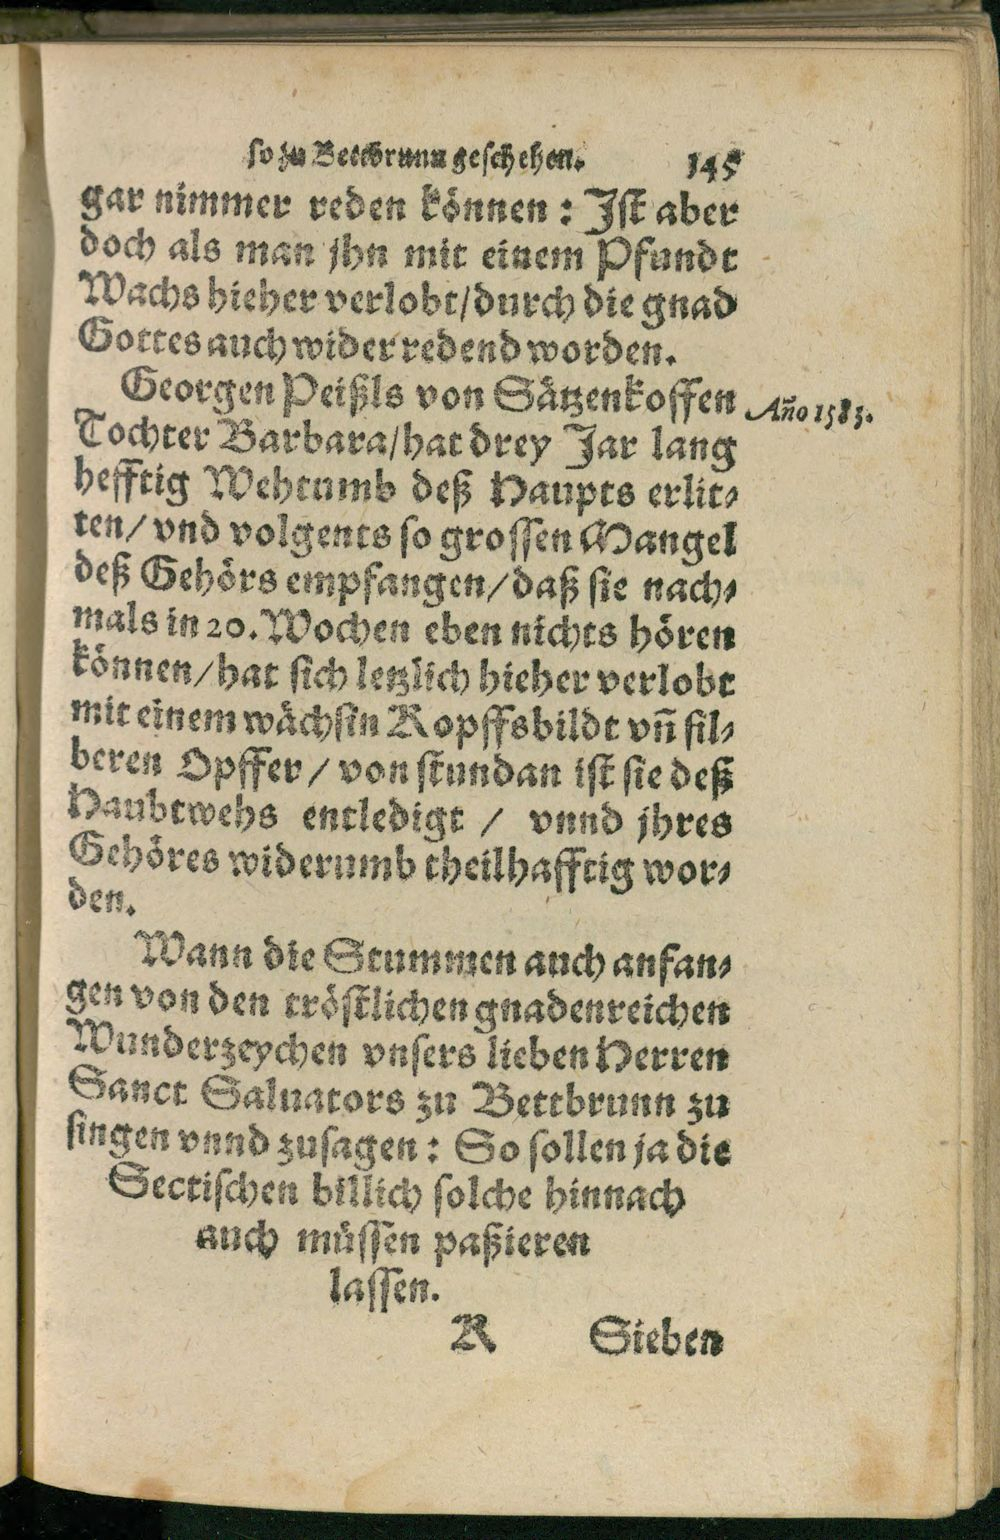 so zu Bettbrunn geschehen. 145
gar nimmer reden können : Ist aber
doch als man jhn mit einem Pfundt
Wachs hieher verlobt/durch die gnad
Gottes auch wider redend worden.
Georgen Peißls von Sätzenkoffen
Año 1585.
Tochter Barbara/hat drey Jar lang
hefftig Wehtumb deß Haupts erlit-
ten/vnd volgents so grossen Mangel
deß Gehörs empfangen/daß sie nach-
mals in 20. Wochen eben nichts hören
können/hat sich letzlich hieher verlobt
mit einem wächsin Kopffsbildt vñ sil-
beren Opffer / von stundan ist sie deß
Haubtwehs entledigt / vnnd jhres
Gehöres widerumb theilhafftig wor-
den.
Wann die Stummen auch anfan-
gen von den tröstlichen gnadenreichen
Wunderzeychen vnsers lieben Herren
Sanct Saluators zu Bettbrunn zu
singen vnnd zusagen : So sollen ja die
Sectischen billich solche hinnach
auch müssen paßieren
lassen.
K Sieben